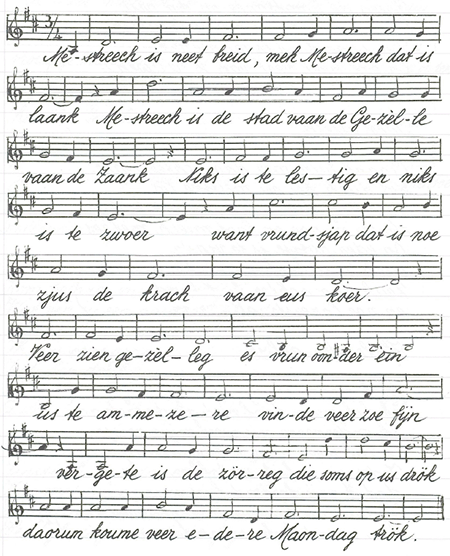 3/4
Me-streech is neet breid, meh Me-streech dat is
laank Me-streech is de stad vaan de Ge-zèl-le
vaan de Zaank Niks is te les-tig en niks
is te zwoer want vrund-sjap dat is noe
zjus de krach vaan eus koer.
Veer zien ge-zèl-leg es vrun oon-der ein
us te am-me-ze-re vin-de veer zoe fijn
ver-ge-te is de zör-reg die soms op us drök
daorum koume veer e-de-re Maon-dag trök.